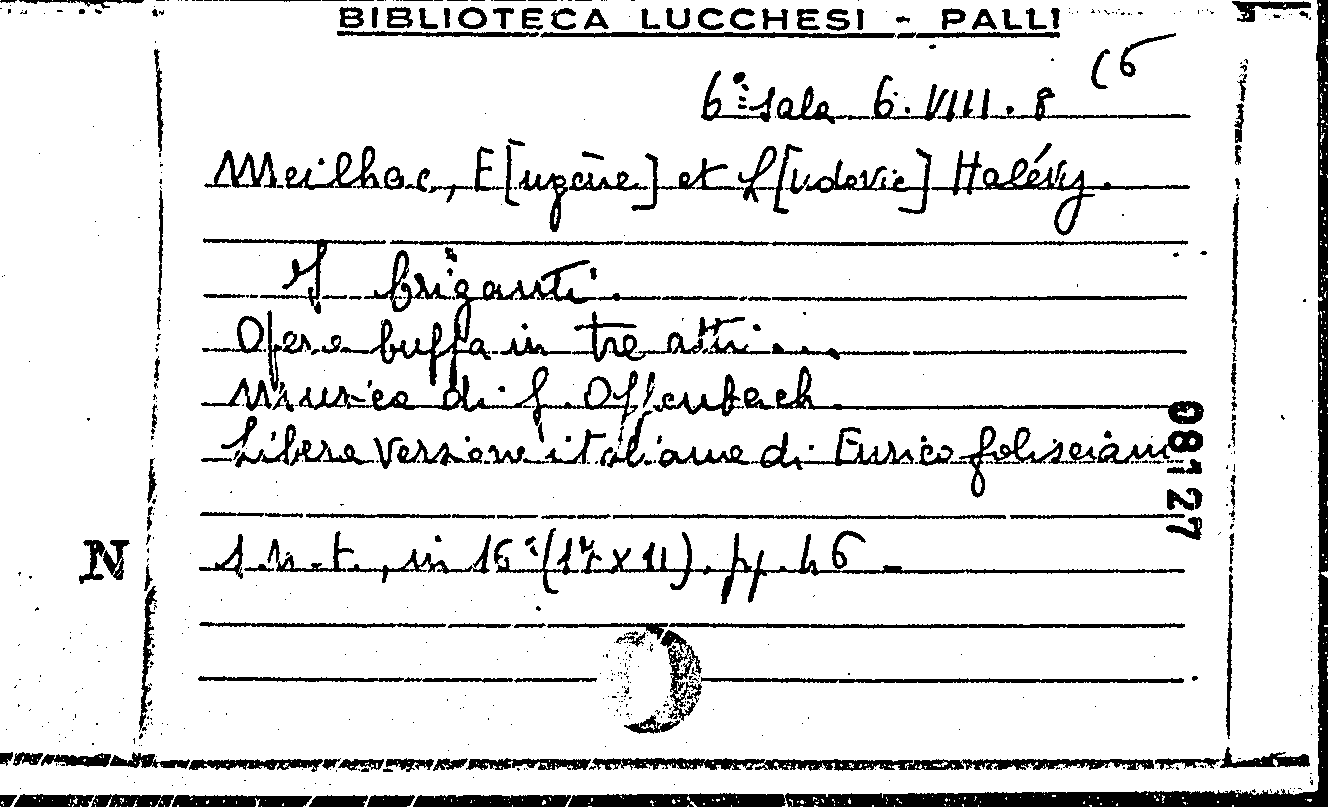 BIBLIOTECA LUCCHESI - PALLI
6ª sala 6. VIII. 8 (6
Meilhac, E[ugène] et L[udovic] Halévy.
I briganti.
Opera buffa in tre atti....
Musica di J. Offenbach.
Libera versione italiana di Enrico Golisciani
08127
N
s.n.t., in 16° (17 x 11). pp. 46 -